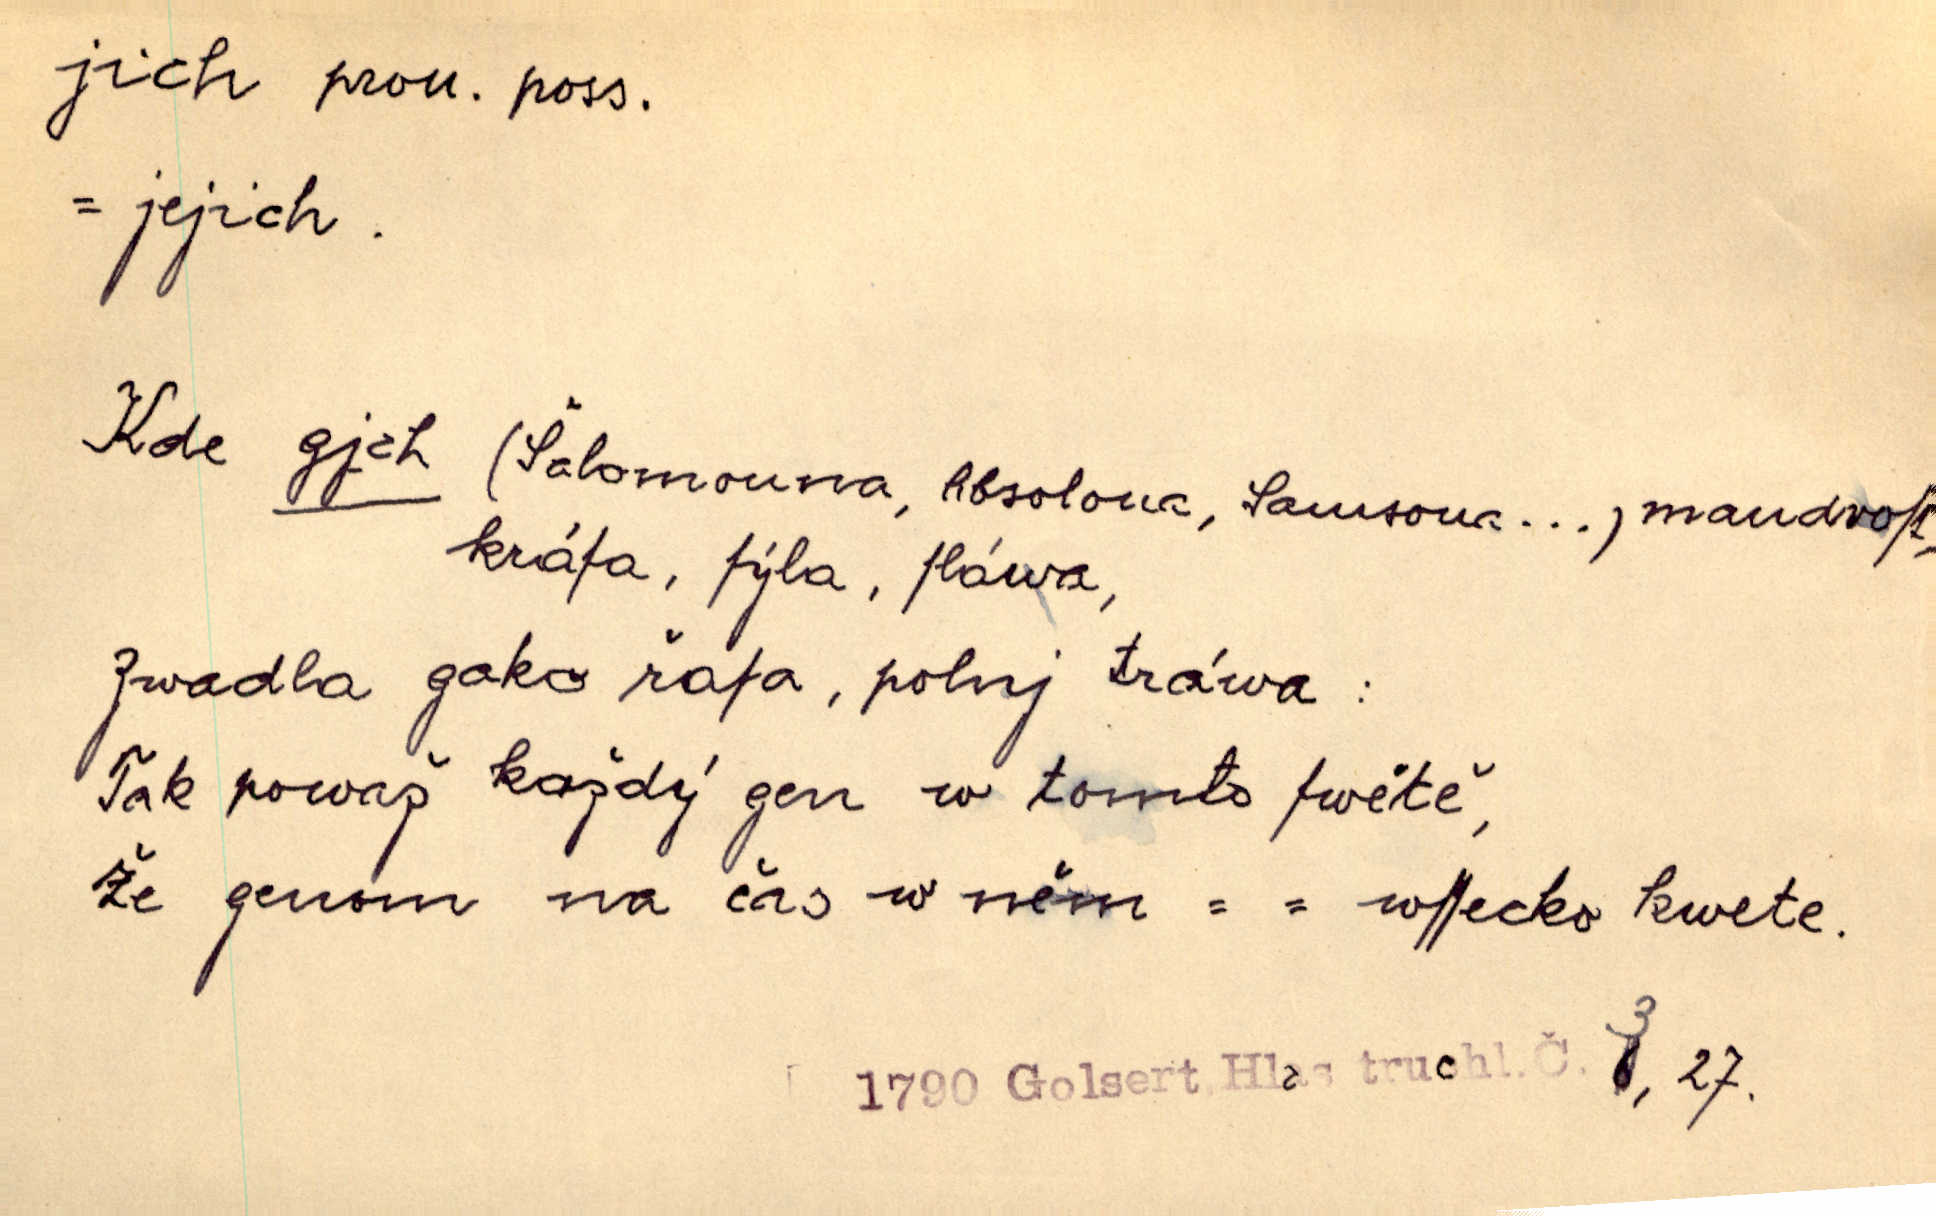 jich pron. poss.
= jejich.
Kde gjch (Šalomouna, Absolona, Samsona...) maudroſt,
kráſa, ſýla, ſláwa,
Zwadla gako řaſa, polnj tráwa :
Tak powaž každý gen w tomto ſwětě,
Že genom na čas w něm = = wſſecko kwete.
1790 Golsert Hlas truchl. Č. 3, 27.